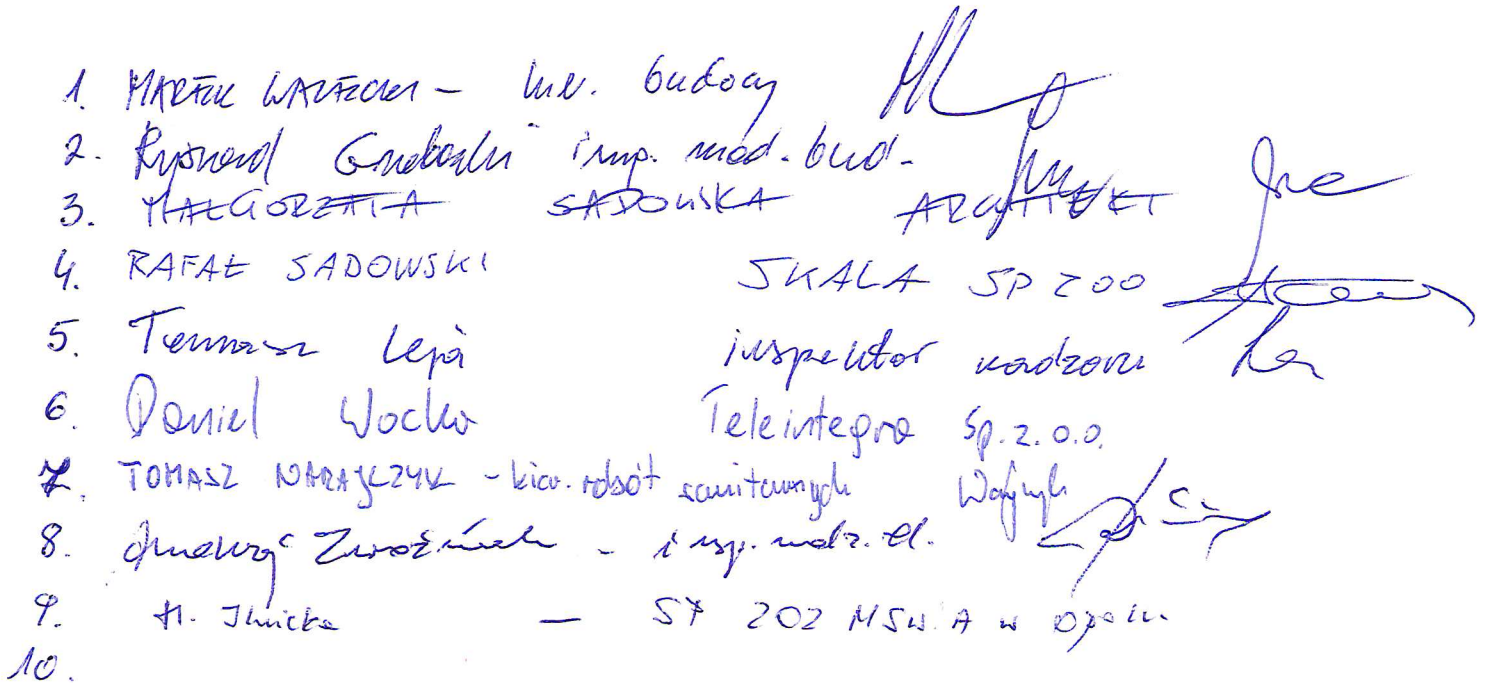 1. MAREK WALECKI – kier. budowy
2. Ryszard Grabowski insp. nad. bud.
3. MAŁGORZATA SADOWSKA ARCHITEKT
4. RAFAŁ SADOWSKI SKALA SP ZOO
5. Tomasz Leja inspektor nadzoru
6. Daniel Wocka Teleintegra Sp.z.o.o.
7. TOMASZ - kier. robót sanitarnych
8. Andrzej - insp. nadz. el.
9. H. Ilnicka — ZOZ MSWiA w Opolu
10.